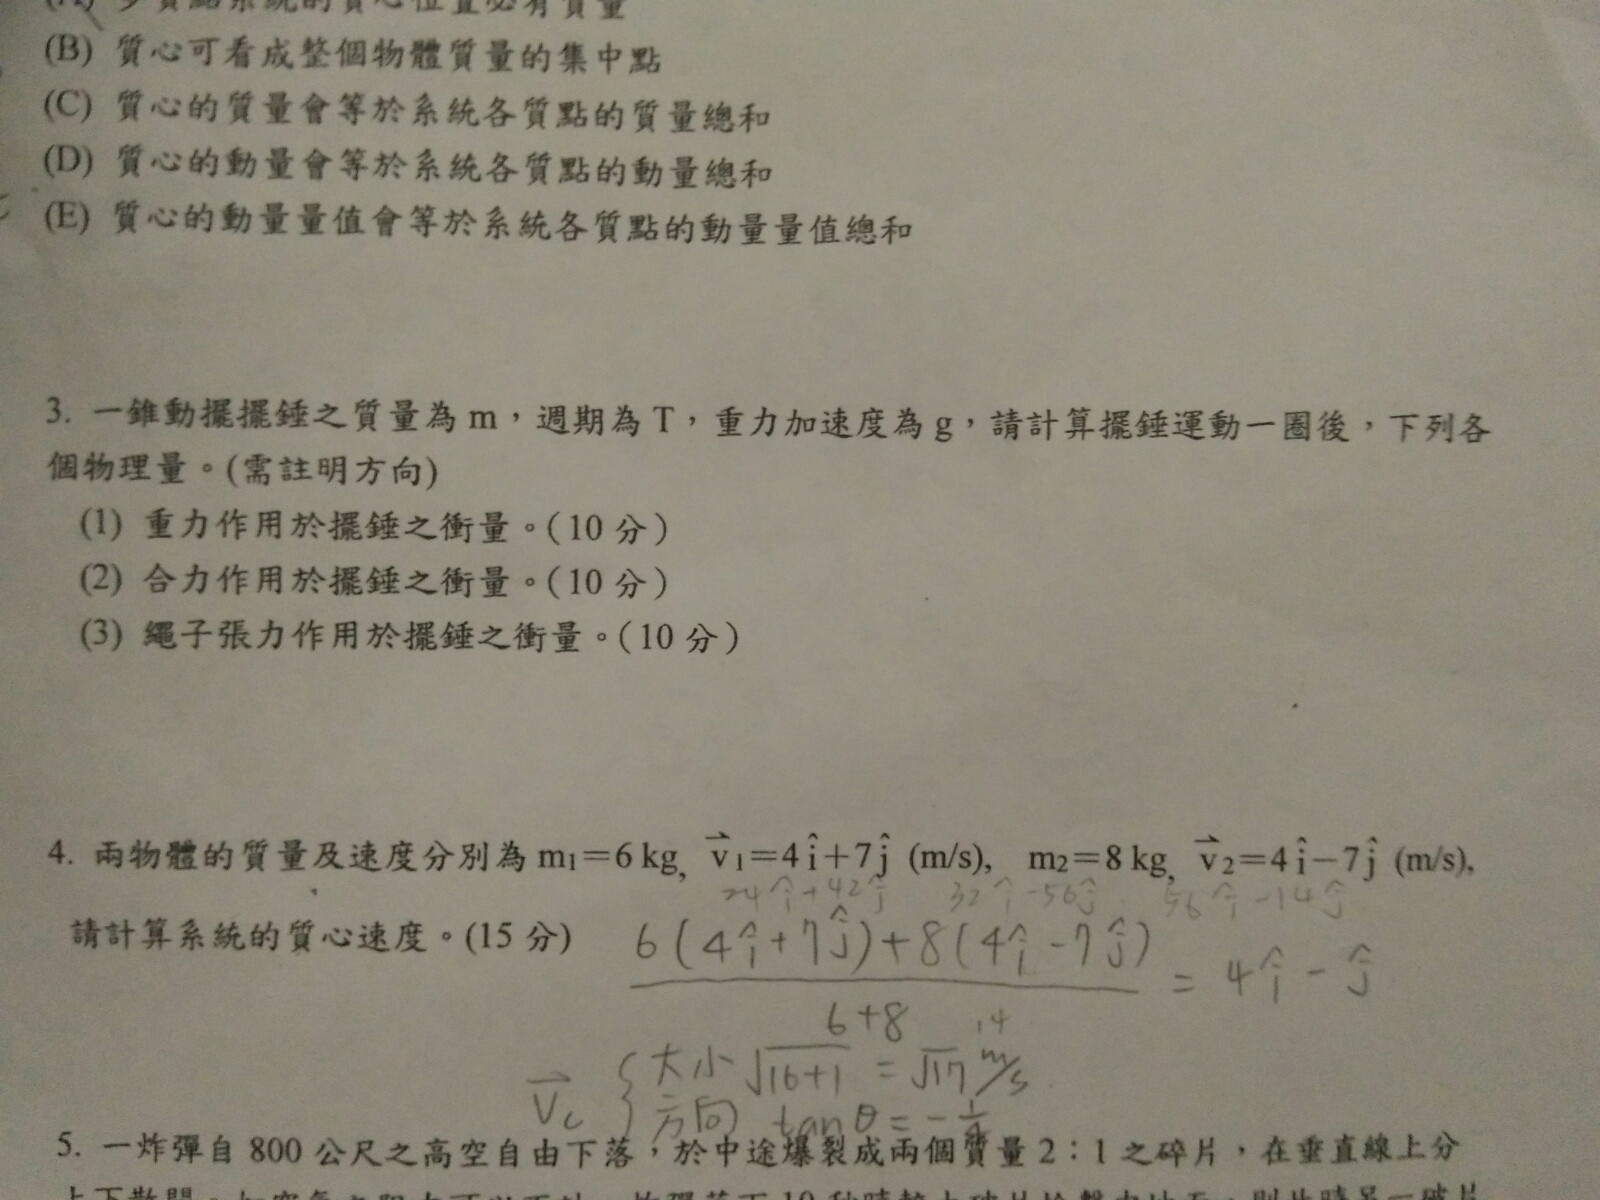 (A) 多質點系統的質心位置必有質量
(B) 質心可看成整個物體質量的集中點
(C) 質心的質量會等於系統各質點的質量總和
(D) 質心的動量會等於系統各質點的動量總和
(E) 質心的動量量值會等於系統各質點的動量量值總和
3. 一錐動擺擺錘之質量為 m，週期為 T，重力加速度為 g，請計算擺錘運動一圈後，下列各
個物理量。(需註明方向)
(1) 重力作用於擺錘之衝量。(10 分)
(2) 合力作用於擺錘之衝量。(10 分)
(3) 繩子張力作用於擺錘之衝量。(10 分)
4. 兩物體的質量及速度分別為 m₁=6 kg, v⃗₁=4î+7ĵ (m/s), m₂=8 kg, v⃗₂=4î−7ĵ (m/s),
24î+42ĵ 32î-56ĵ 56î-14ĵ
請計算系統的質心速度。(15 分) 6(4î+7ĵ)+8(4î-7ĵ)
= 4î - ĵ
6+8 14
v⃗c { 大小 √16+1 = √17 m/s
方向 tanθ = -1/4
5. 一炸彈自 800 公尺之高空自由下落，於中途爆裂成兩個質量 2：1 之碎片，在垂直線上分